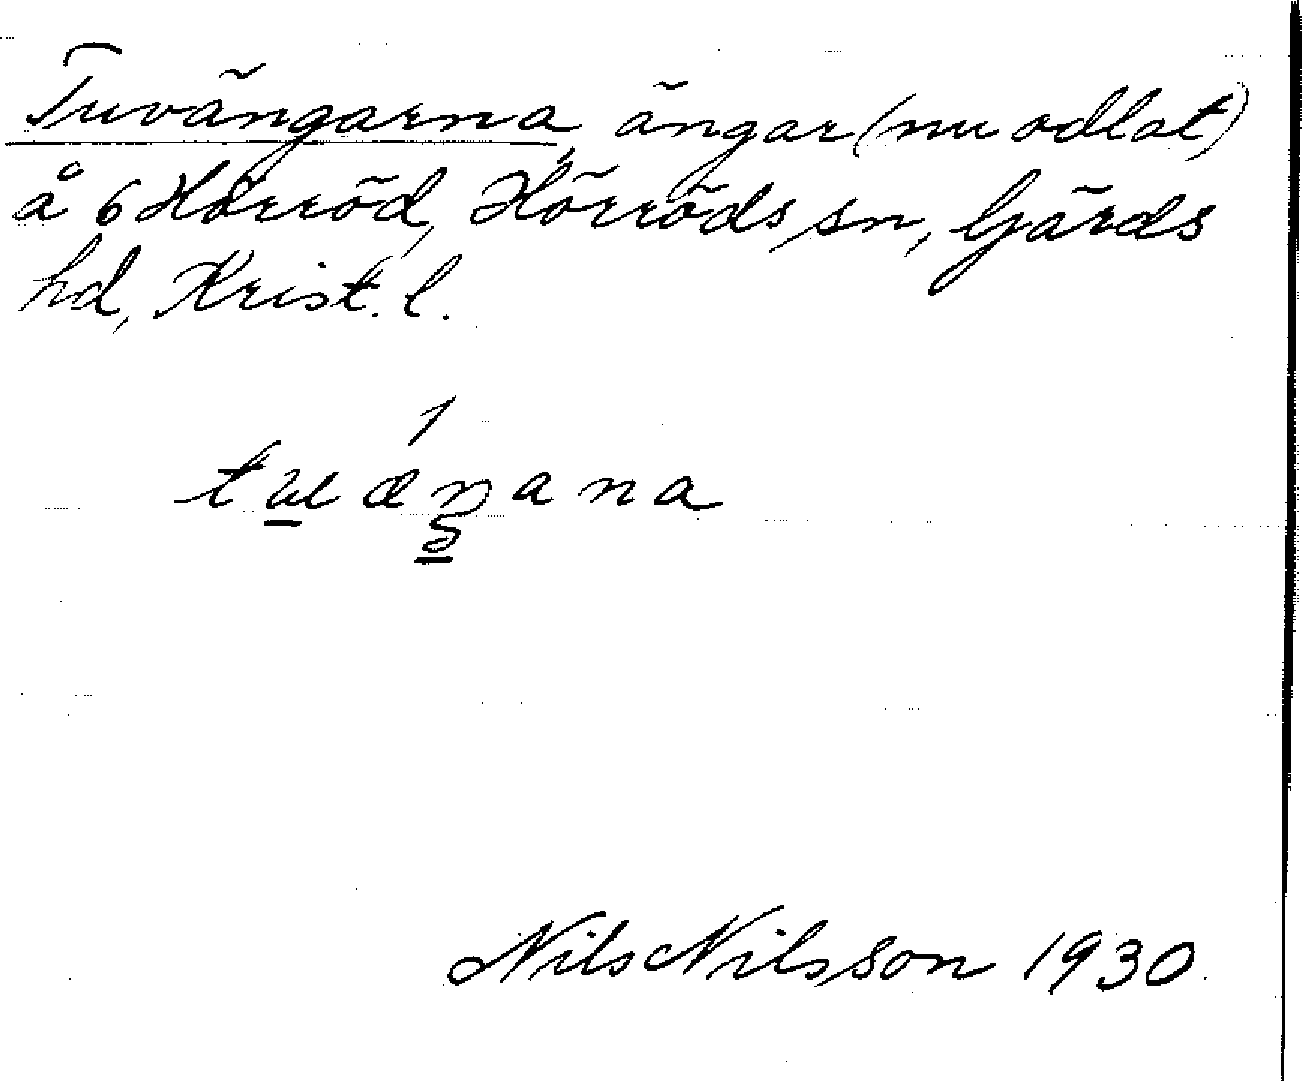 Tuvängarna, ängar (nu odlat)
å 6 Hörröd, Hörröds sn, Gärds
hd, Krist. l.
Nils Nilsson 1930